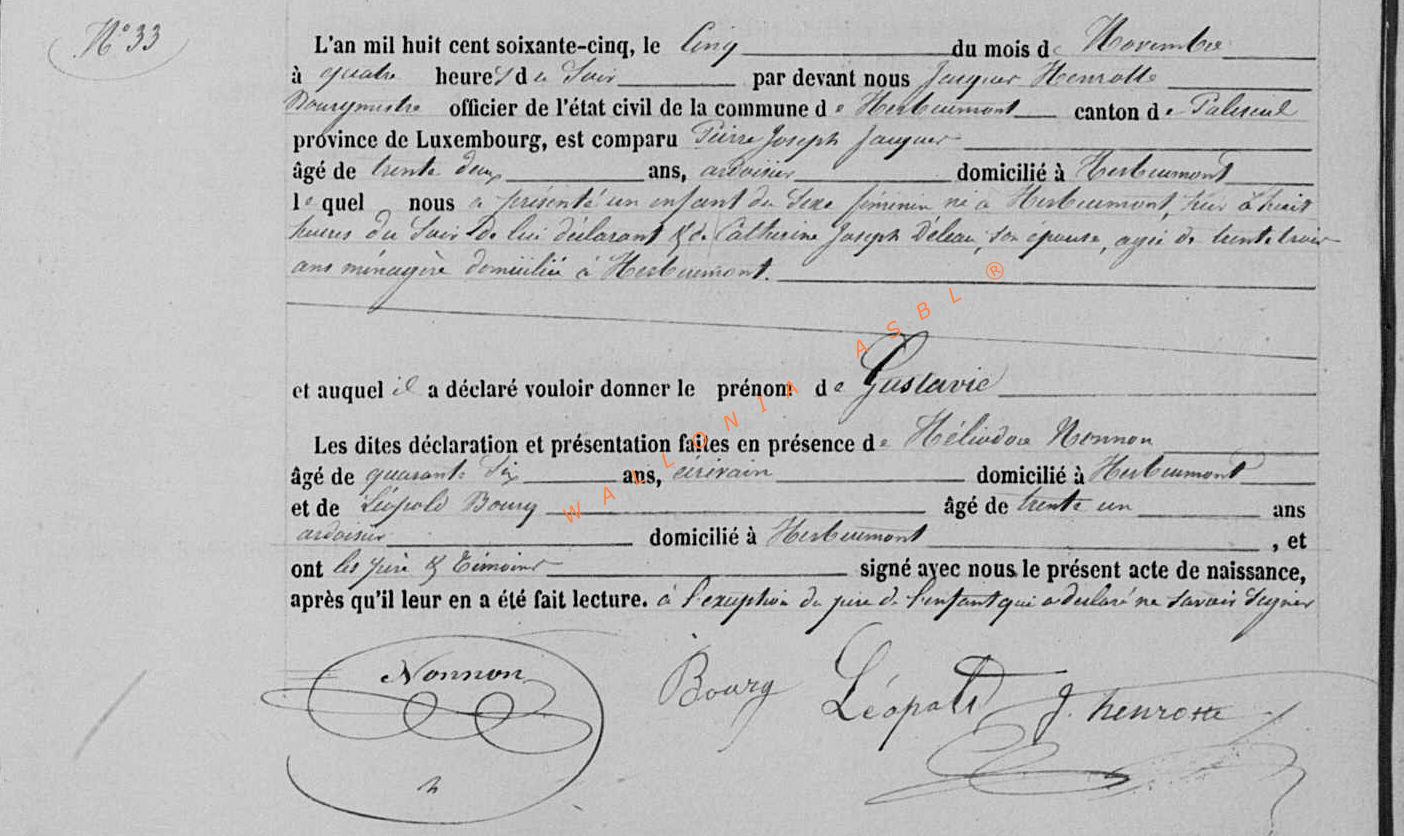 N° 33
L'an mil huit cent soixante-cinq, le Cinq du mois de Novembre
à quatre heures du Soir par devant nous Jacques Henrotte
Bourgmestre officier de l'état civil de la commune de Herbeumont canton de Paliseul
province de Luxembourg, est comparu Pierre Joseph Jacques
âgé de trente deux ans, ardoisier domicilié à Herbeumont
lequel nous a présenté un enfant du Sexe féminin né à Herbeumont, hier à huit
heures du Soir de lui déclarant & de Catherine Joseph Déleau, son épouse, agée de trente trois
ans ménagère domiciliée à Herbeumont.
et auquel il a déclaré vouloir donner le prénom de Gustavie
Les dites déclaration et présentation faites en présence de Héliodore Nonnon
âgé de quarante Six ans, écrivain domicilié à Herbeumont
et de Léopold Bourg âgé de trente un ans
ardoisier domicilié à Herbeumont, et
ont les père & Témoins signé avec nous le présent acte de naissance,
après qu'il leur en a été fait lecture. à l'exception du père de l'enfant qui a déclaré ne Savoir Signer
Nonnon Bourg Léopold J. henrotte
WALLONIA ASBL ®